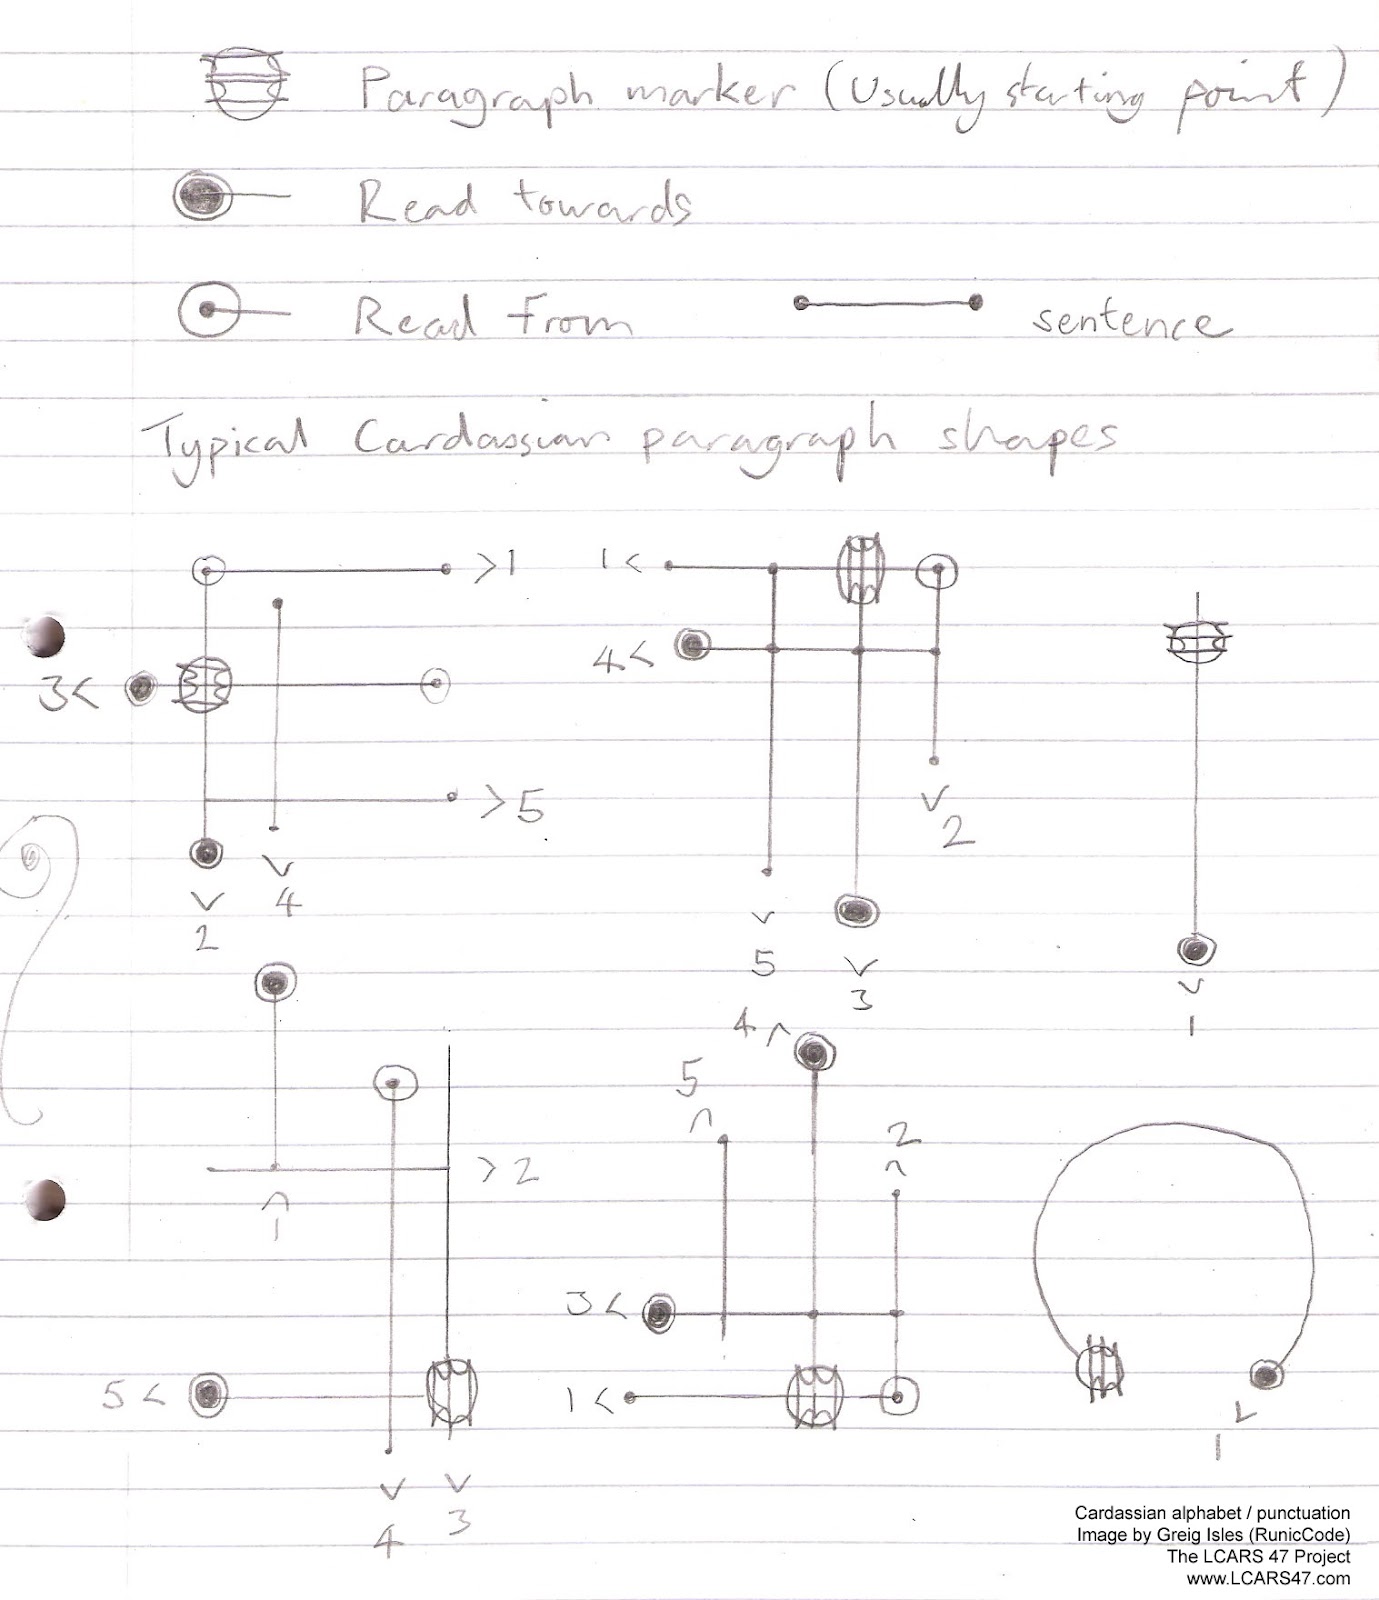 Paragraph marker (Usually starting point)
Read towards
Read from
sentence
Typical Cardassian paragraph shapes
>1
1<
3<
4<
>5
v
2
v
4
v
2
v
5
v
3
v
1
4 ^
5
^
2
^
>2
^
1
3<
5<
1<
v
1
v
4
v
3
Cardassian alphabet / punctuation
Image by Greig Isles (RunicCode)
The LCARS 47 Project
www.LCARS47.com